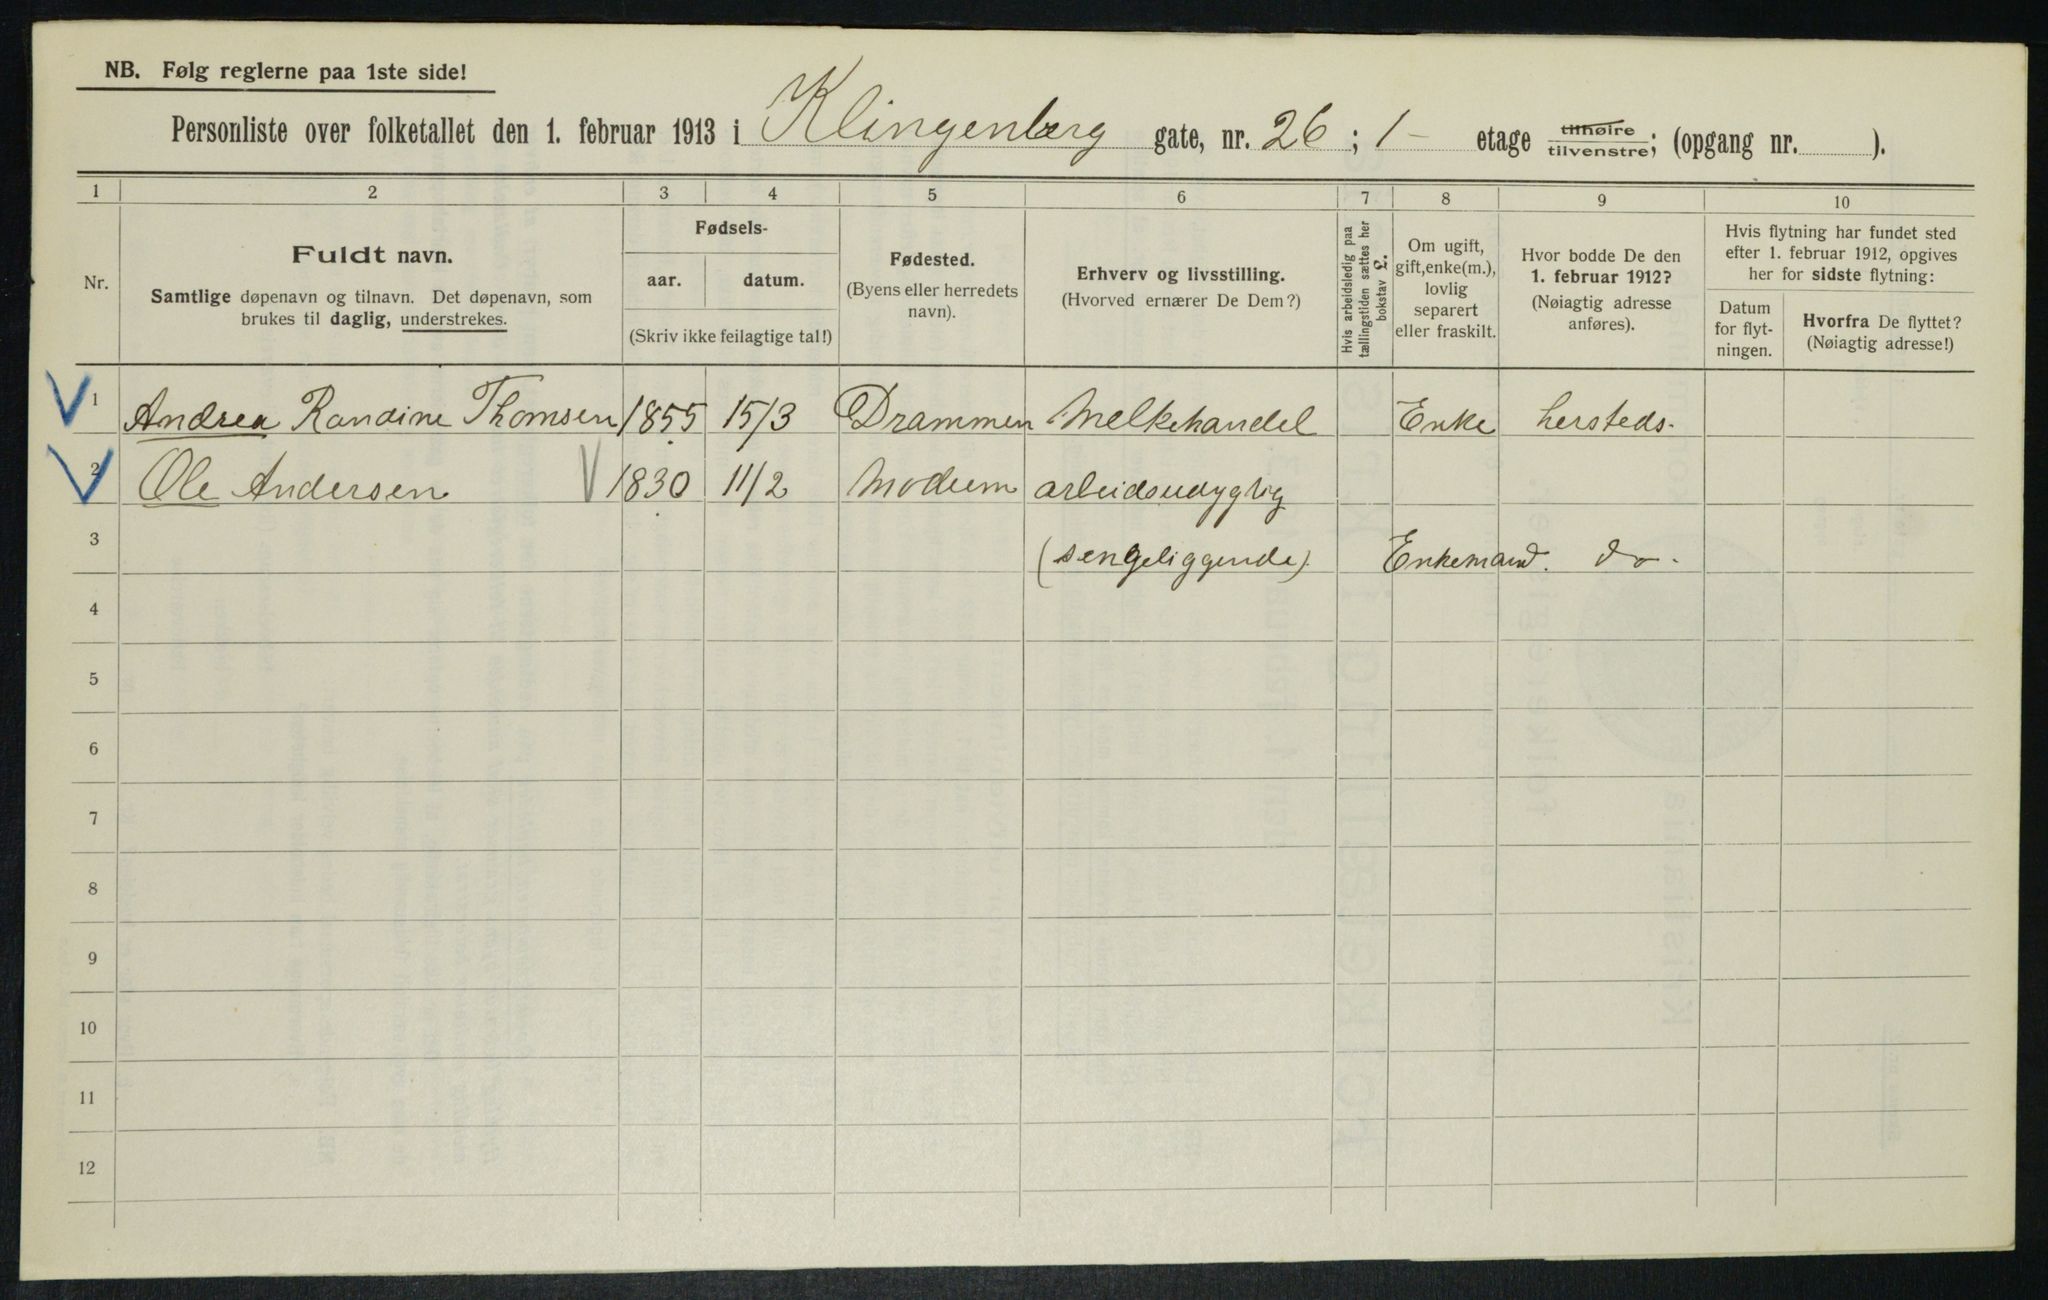 NB. Følg reglerne paa 1ste side!
Personliste over folketallet den 1. februar 1913 i Klingenberg gate, nr. 26 ; 1- etage tilhøire tilvenstre; (opgang nr. ).
1 2 3 4 5 6 7 8 9 10
Nr.
Fuldt navn.
Samtlige døpenavn og tilnavn. Det døpenavn, som
brukes til daglig, understrekes.
Fødsels-
aar. datum.
(Skriv ikke feilagtige tal!)
Fødested.
(Byens eller herredets
navn).
Erhverv og livsstilling.
(Hvorved ernærer De Dem?)
Hvis arbeidsledig paa
tællingstiden sættes her
bokstav L.
Om ugift,
gift, enke(m.),
lovlig
separert
eller fraskilt.
Hvor bodde De den
1. februar 1912?
(Nøiagtig adresse
anføres).
Hvis flytning har fundet sted
efter 1. februar 1912, opgives
her for sidste flytning:
Datum
for flyt-
ningen.
Hvorfra De flyttet?
(Nøiagtig adresse!)
1 Andrea Randine Thomsen 1855 15/3 Drammen Melkehandel Enke hersteds.
2 Ole Andersen 1830 11/2 Modum arbeidsudygtig
3 (sengeliggende). Enkemand. do.
4
5
6
7
8
9
10
11
12